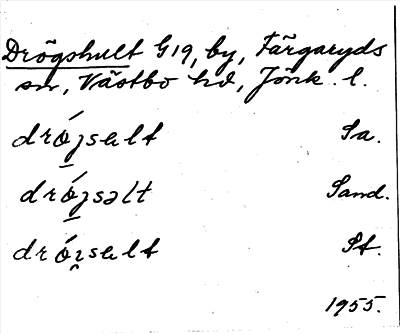 Drögshult G19, by, Färgaryds
sn, Västbo hd, Jönk. l.
dró̱ȷsult Sa.
dró̱ȷsəlt Sand.
dró̱ısult St.
1955.